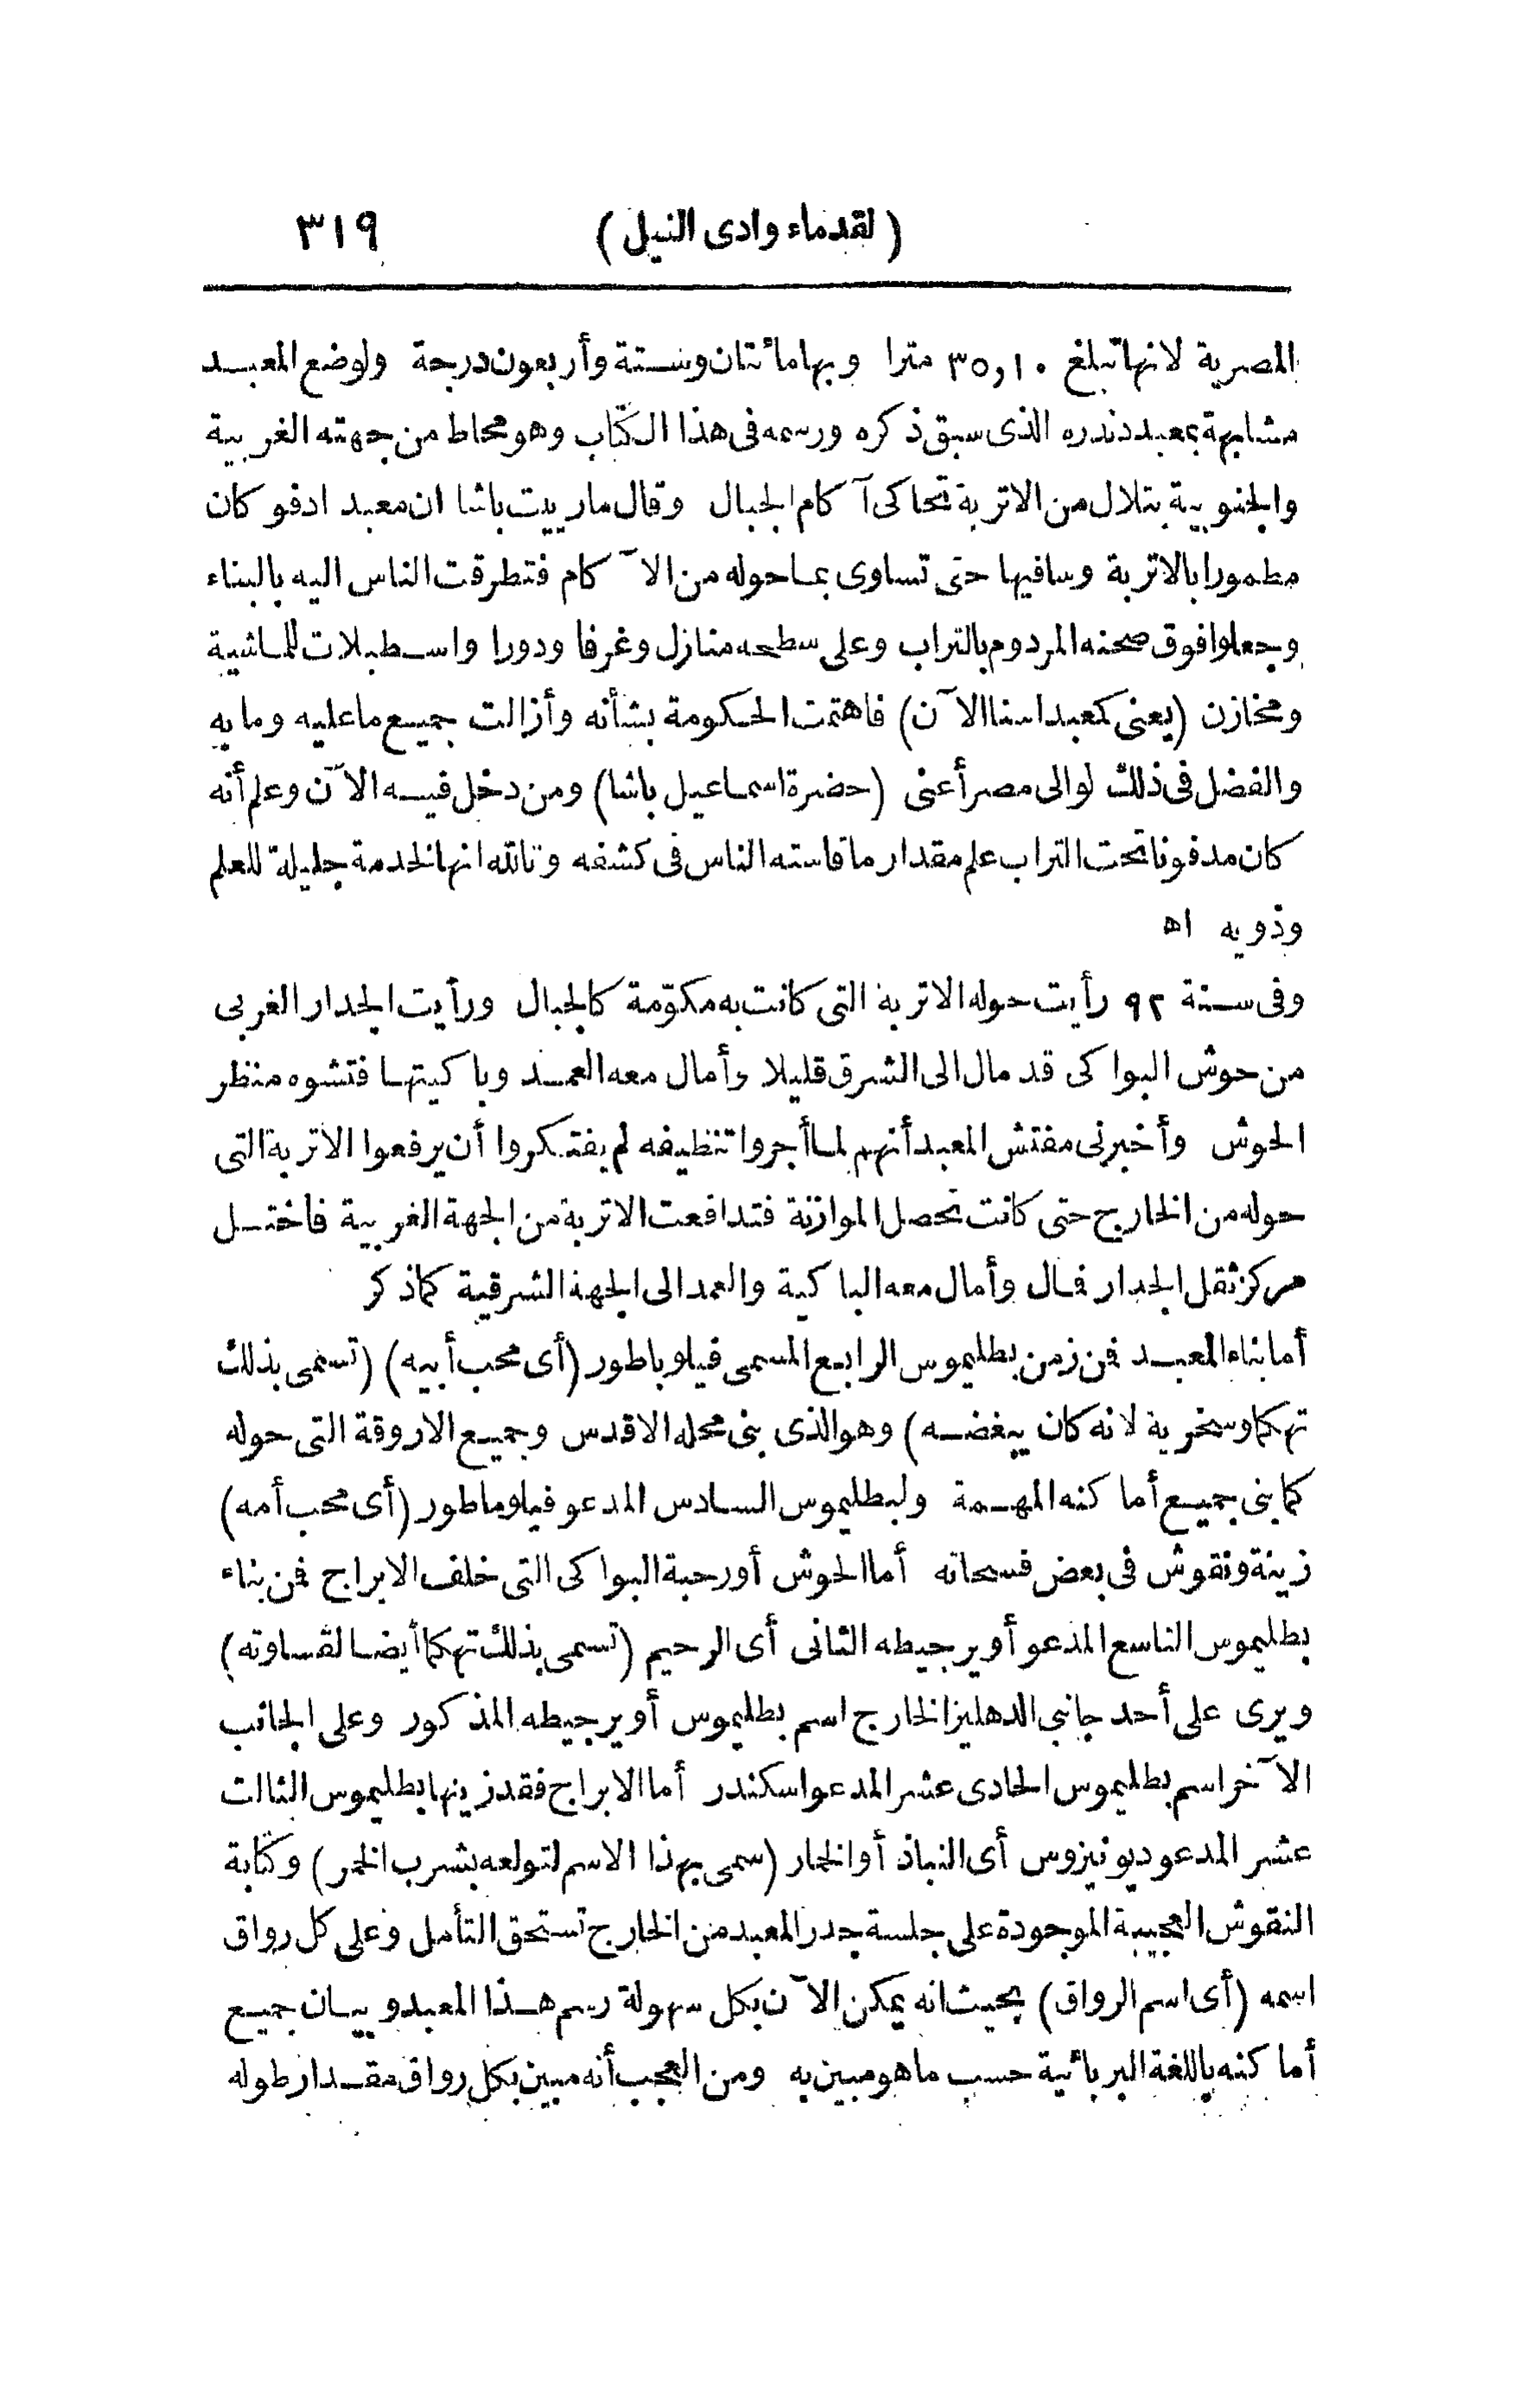 (لقدماء وادى النيل) ٣١٩
المصرية لانها تبلغ ٣٥,١٠ مترا وبها مائتان وستة وأربعون درجة ولوضع المعبد
مشابهة بمعبد دندره الذى سبق ذكره ورسمه فى هذا الكتاب وهو محاط من جهته الغربية
والجنوبية بتلال من الاتربة تحاكى آكام الجبال وقال مارييت باشا ان معبد ادفو كان
مطمورا بالاتربة وسافيها حتى تساوى بما حوله من الآكام فتطرقت الناس اليه بالبناء
وجعلوا فوق صحنه المردوم بالتراب وعلى سطحه منازل وغرفا ودورا واسطبلات للماشية
ومخازن (يعنى كمعبد اسنا الآن) فاهتمت الحكومة بشأنه وأزالت جميع ما عليه وما به
والفضل فى ذلك لوالى مصر أعنى (حضرة اسماعيل باشا) ومن دخل فيه الآن وعلم أنه
كان مدفونا تحت التراب علم مقدار ما قاسته الناس فى كشفه وتالله انها لخدمة جليلة للعلم
وذويه اه
وفى سنة ٩٢ رأيت حوله الاتربة التى كانت به مكوّمة كالجبال ورأيت الجدار الغربى
من حوش البواكى قد مال الى الشرق قليلا وأمال معه العمد وباكيتها فتشوه منظر
الحوش وأخبرنى مفتش المعبد أنهم لما أجروا تنظيفه لم يفتكروا أن يرفعوا الاتربة التى
حوله من الخارج حتى كانت تحصل الموازنة فتدافعت الاتربة من الجهة الغربية فاختل
مركز ثقل الجدار فمال وأمال معه الباكية والعمد الى الجهة الشرقية كما ذكر
أما بناء المعبد فمن زمن بطليموس الرابع المسمى فيلوباطور (أى محب أبيه) (تسمى بذلك
تهكما وسخرية لانه كان يبغضه) وهو الذى بنى محله الاقدس وجميع الاروقة التى حوله
كما بنى جميع أماكنه المهمة ولبطليموس السادس المدعو فيلوماطور (أى محب أمه)
زينة ونقوش فى بعض فسحاته أما الحوش أو رحبة البواكى التى خلف الابراج فمن بناء
بطليموس التاسع المدعو أويرجيطه الثانى أى الرحيم (تسمى بذلك تهكما أيضا لقساوته)
ويرى على أحد جانبى الدهليز الخارج اسم بطليموس أويرجيطه المذكور وعلى الجانب
الآخر اسم بطليموس الحادى عشر المدعو اسكندر أما الابراج فقد زينها بطليموس الثالث
عشر المدعو ديونيزوس أى النباذ أو الخمار (سمى بهذا الاسم لتولعه بشرب الخمر) وكتابة
النقوش العجيبة الموجودة على جلسة جدر المعبد من الخارج تستحق التأمل وعلى كل رواق
اسمه (أى اسم الرواق) بحيث انه يمكن الآن بكل سهولة رسم هذا المعبد وبيان جميع
أماكنه باللغة البربائية حسب ما هو مبين به ومن العجب أنه مبين بكل رواق مقدار طوله